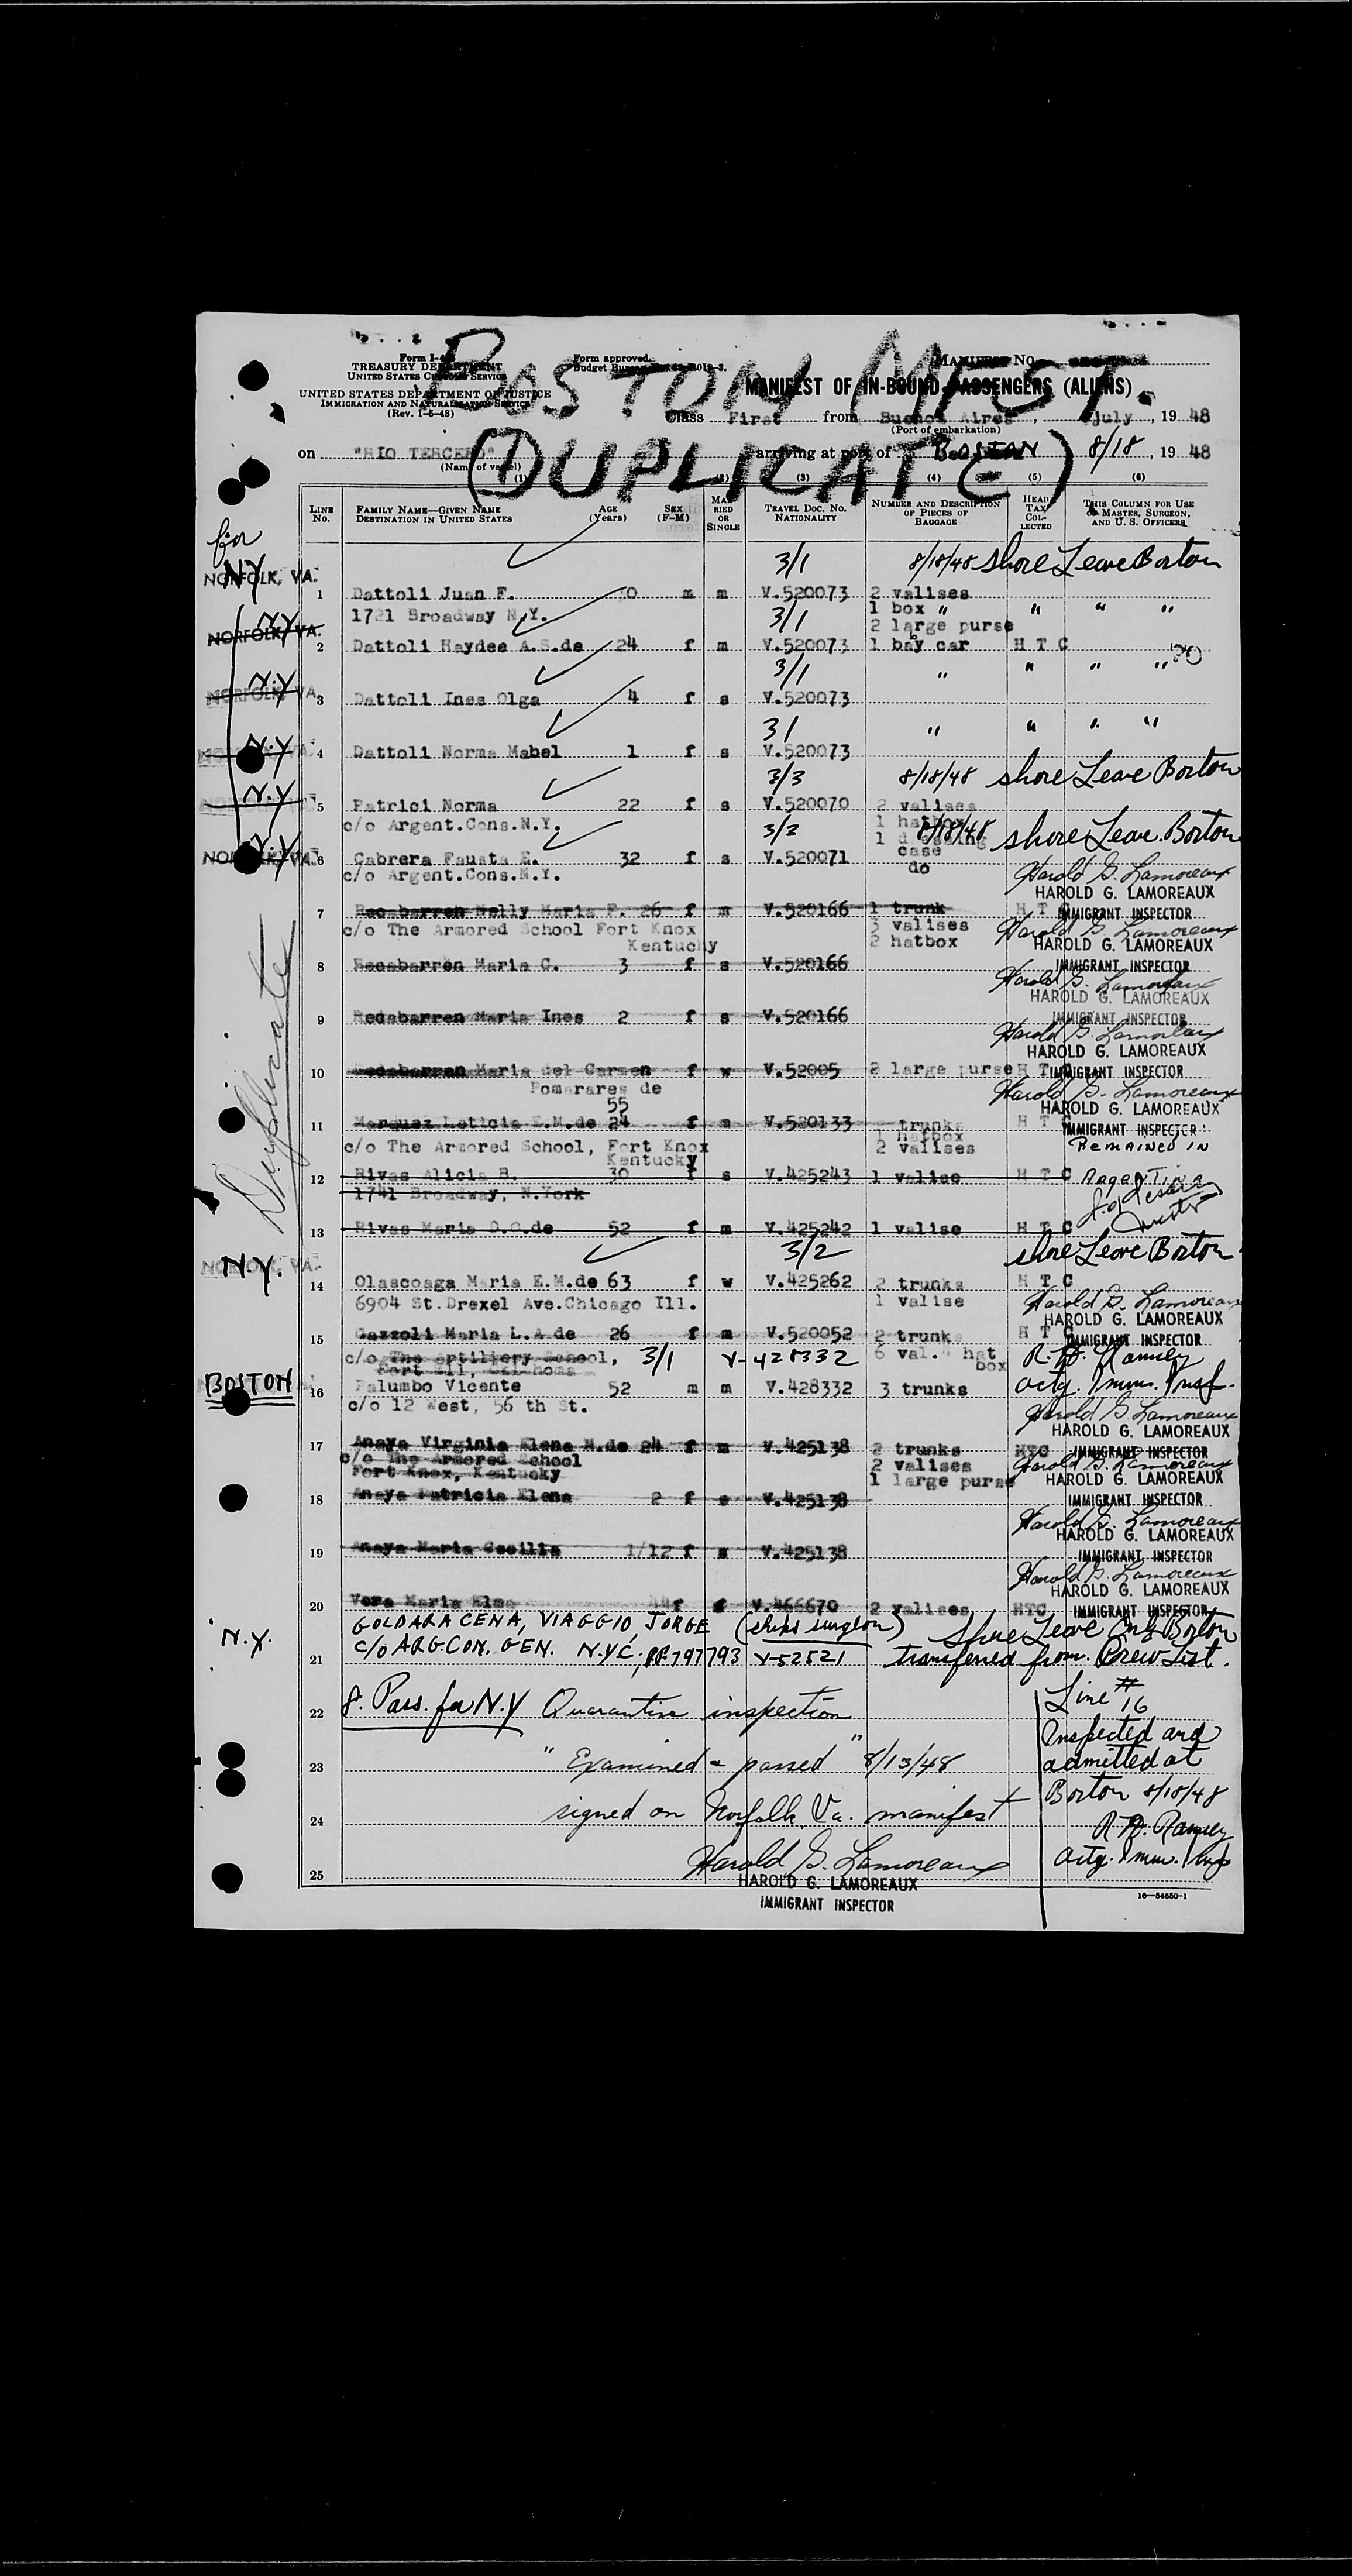 BOSTON MFST
(DUPLICATE)
TREASURY DEPARTMENT
UNITED STATES CUSTOMS SERVICE
UNITED STATES DEPARTMENT OF JUSTICE
IMMIGRATION AND NATURALIZATION SERVICE
(Rev. 1-6-48)
Form approved.
MANIFEST No.
MANIFEST OF IN-BOUND PASSENGERS (ALIENS)
Class First from Buenos Aires, July, 19 48
(Port of embarkation)
on "RIO TERCERO" arriving at port of BOSTON 8/18, 19 48
(Name of vessel)
(1) (3) (4) (5) (6)
LINE No. FAMILY NAME—GIVEN NAME DESTINATION IN UNITED STATES AGE (Years) SEX (F-M) MARRIED OR SINGLE TRAVEL DOC. NO. NATIONALITY NUMBER AND DESCRIPTION OF PIECES OF BAGGAGE HEAD TAX COLLECTED THIS COLUMN FOR USE OF MASTER, SURGEON, AND U. S. OFFICERS
for
NY 3/1 8/18/48 Shore Leave Boston
NORFOLK, VA.
1 Dattoli Juan F. m m V.520073 2 valises
1721 Broadway N.Y. 3/1 1 box " " " "
N.Y. 2 large purse
NORFOLK, VA.
2 Dattoli Haydee A.S.de 24 f m V.520073 1 baby car H T C
3/1 " " " "
N.Y.
NORFOLK, VA.
3 Dattoli Ines Olga 4 f s V.520073
3/ " " " "
N.Y. 4 Dattoli Norma Mabel 1 f s V.520073
3/3 8/18/48 shore Leave Boston
N.Y. 5 Patrici Norma 22 f s V.520070 2 valises
c/o Argent.Cons.N.Y. 3/2 1 hatbox 8/18/48 shore Leave Boston
1 dressing case
N.Y. 6 Cabrera Fausta E. 32 f s V.520071 do
c/o Argent.Cons.N.Y. Harold G. Lamoreaux
HAROLD G. LAMOREAUX
7 Recabarren Nelly Maria F. 26 f m V.520166 1 trunk H T C IMMIGRANT INSPECTOR
c/o The Armored School Fort Knox 3 valises Harold G. Lamoreaux
Kentucky 2 hatbox HAROLD G. LAMOREAUX
8 Recabarren Maria C. 3 f s V.520166 IMMIGRANT INSPECTOR
Harold G. Lamoreaux
HAROLD G. LAMOREAUX
9 Recabarren Maria Ines 2 f s V.520166 IMMIGRANT INSPECTOR
Harold G. Lamoreaux
HAROLD G. LAMOREAUX
Duplicate
10 Recabarren Maria del Carmen f w V.52005 2 large purse H T C IMMIGRANT INSPECTOR
Pomarares de Harold G. Lamoreaux
55 HAROLD G. LAMOREAUX
11 Marquez Leticia E.M.de 24 f m V.520133 trunks H T C IMMIGRANT INSPECTOR
1 hatbox
c/o The Armored School, Fort Knox 2 valises REMAINED IN
Kentucky
12 Rivas Alicia B. 30 f s V.425243 1 valise H T C
1741 Broadway, N.York
13 Rivas Maria O.O.de 52 f m V.425242 1 valise H T C
3/2 shore Leave Boston
N.Y. 14 Olascoaga Maria E.M.de 63 f w V.425262 2 trunks H T C
6904 St.Drexel Ave.Chicago Ill. 1 valise Harold G. Lamoreaux
HAROLD G. LAMOREAUX
15 Gazzoli Maria L.A.de 26 f m V.520052 2 trunk H T C IMMIGRANT INSPECTOR
c/o The Artillery School, 3/1 V-428332 6 val. hat box R. W. Ramsey
Fort Sill, Oklahoma
BOSTON 16 Palumbo Vicente 52 m m V.428332 3 trunks actg. Imm. Insp.
c/o 12 West, 56 th St. Harold G. Lamoreaux
HAROLD G. LAMOREAUX
17 Anaya Virginia Elena M.de 24 f m V.425138 2 trunks HTC IMMIGRANT INSPECTOR
c/o The Armored School 2 valises Harold G. Lamoreaux
Fort Knox, Kentucky 1 large purse HAROLD G. LAMOREAUX
18 Anaya Patricia Elena 2 f s V.425138 IMMIGRANT INSPECTOR
Harold G. Lamoreaux
HAROLD G. LAMOREAUX
19 Anaya Maria Cecilia 1/12 f s V.425138 IMMIGRANT INSPECTOR
Harold G. Lamoreaux
HAROLD G. LAMOREAUX
20 Vera Maria Elma f V.466670 2 valises HTC IMMIGRANT INSPECTOR
GOLDARACENA, VIAGGIO, JORGE (ships surgeon) Shore Leave Only Boston
N.Y. 21 C/O ARG.CON. GEN. N.Y.C. PP.797793 V-52521 transferred from Crew List.
22 8. Pass. for N.Y Quarantine inspection Line #16
Inspected and
23 " Examined - passed " 8/13/48 admitted at
Boston 8/18/48
24 signed on Norfolk, Va. manifest R. W. Ramsey
Harold G. Lamoreaux actg. Imm. Insp
25 HAROLD G. LAMOREAUX
IMMIGRANT INSPECTOR
16—54650-1